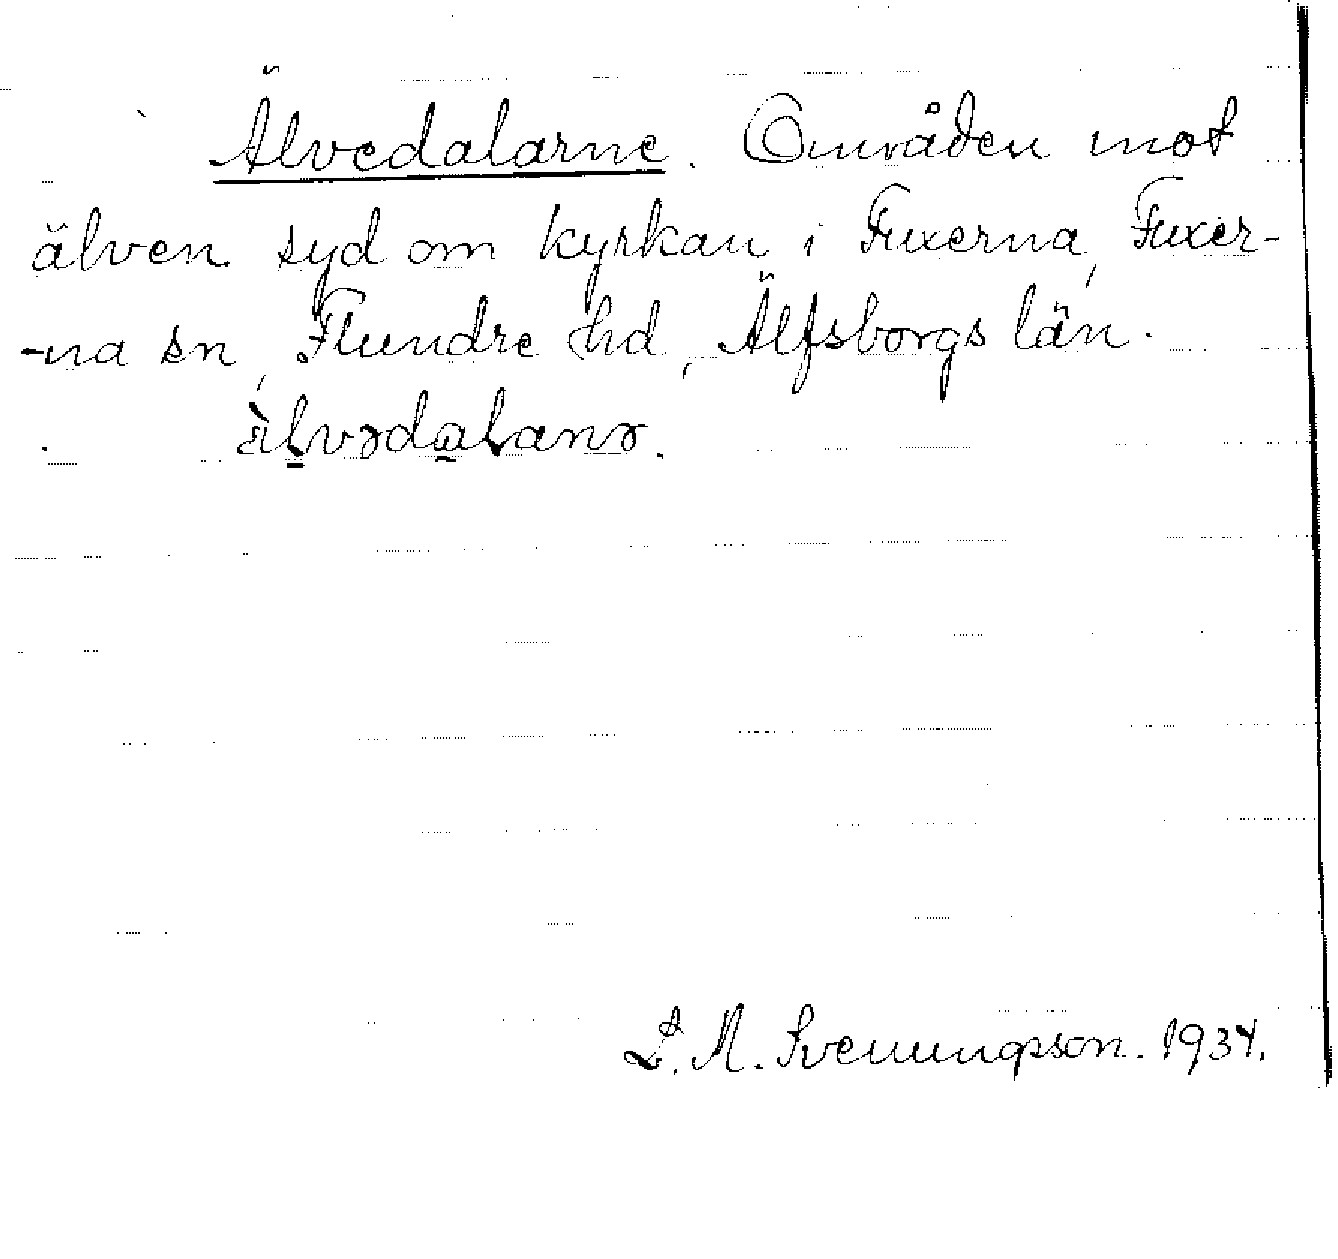 Älvedalarne. Områden mot
älven syd om kyrkan i Fuxerna, Fuxer-
-na sn, Flundre hd, Älfsborgs län.
älvədalanə.
L. M. Svenungsson. 1934.